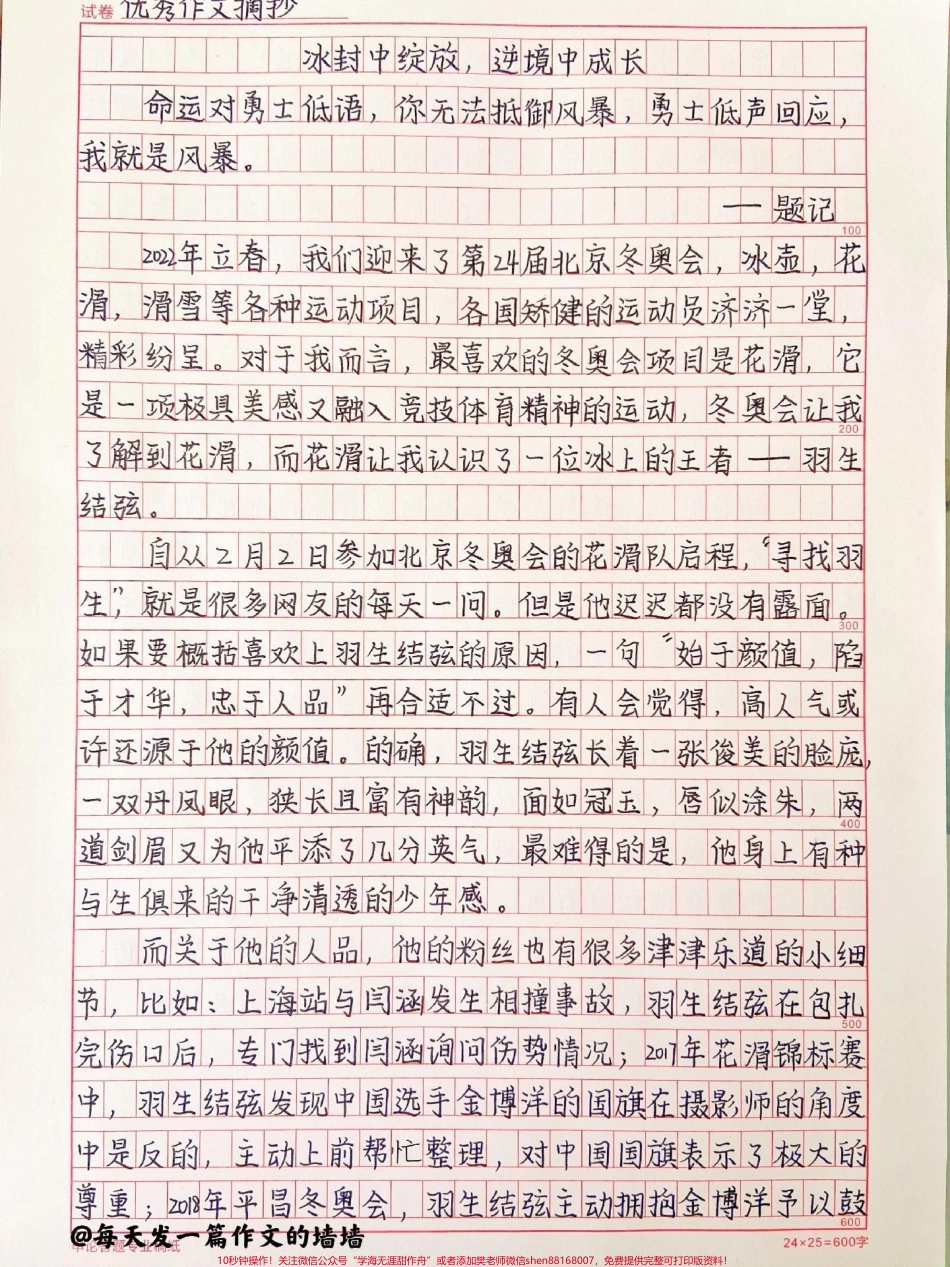 试卷 优秀作文摘抄
冰封中绽放，逆境中成长
命运对勇士低语，你无法抵御风暴，勇士低声回应，
我就是风暴。
—— 题记
100
2022年立春，我们迎来了第24届北京冬奥会，冰壶，花
滑，滑雪等各种运动项目，各国矫健的运动员济济一堂，
精彩纷呈。对于我而言，最喜欢的冬奥会项目是花滑，它
是一项极具美感又融入竞技体育精神的运动，冬奥会让我
200
了解到花滑，而花滑让我认识了一位冰上的王者——羽生
结弦。
自从2月2日参加北京冬奥会的花滑队启程，“寻找羽
生”，就是很多网友的每天一问。但是他迟迟都没有露面。
300
如果要概括喜欢上羽生结弦的原因，一句“始于颜值，陷
于才华，忠于人品”再合适不过。有人会觉得，高人气或
许还源于他的颜值。的确，羽生结弦长着一张俊美的脸庞，
一双丹凤眼，狭长且富有神韵，面如冠玉，唇似涂朱，两
400
道剑眉又为他平添了几分英气，最难得的是，他身上有种
与生俱来的干净清透的少年感。
而关于他的人品，他的粉丝也有很多津津乐道的小细
节，比如：上海站与闫涵发生相撞事故，羽生结弦在包扎
500
完伤口后，专门找到闫涵询问伤势情况；2017年花滑锦标赛
中，羽生结弦发现中国选手金博洋的国旗在摄影师的角度
中是反的，主动上前帮忙整理，对中国国旗表示了极大的
尊重；2018年平昌冬奥会，羽生结弦主动拥抱金博洋予以鼓
600
@每天发一篇作文的墙墙
申论答题专业稿纸
24×25=600字
10秒钟操作！关注微信公众号“学海无涯甜作舟”或者添加樊老师微信shen88168007，免费提供完整可打印版资料！